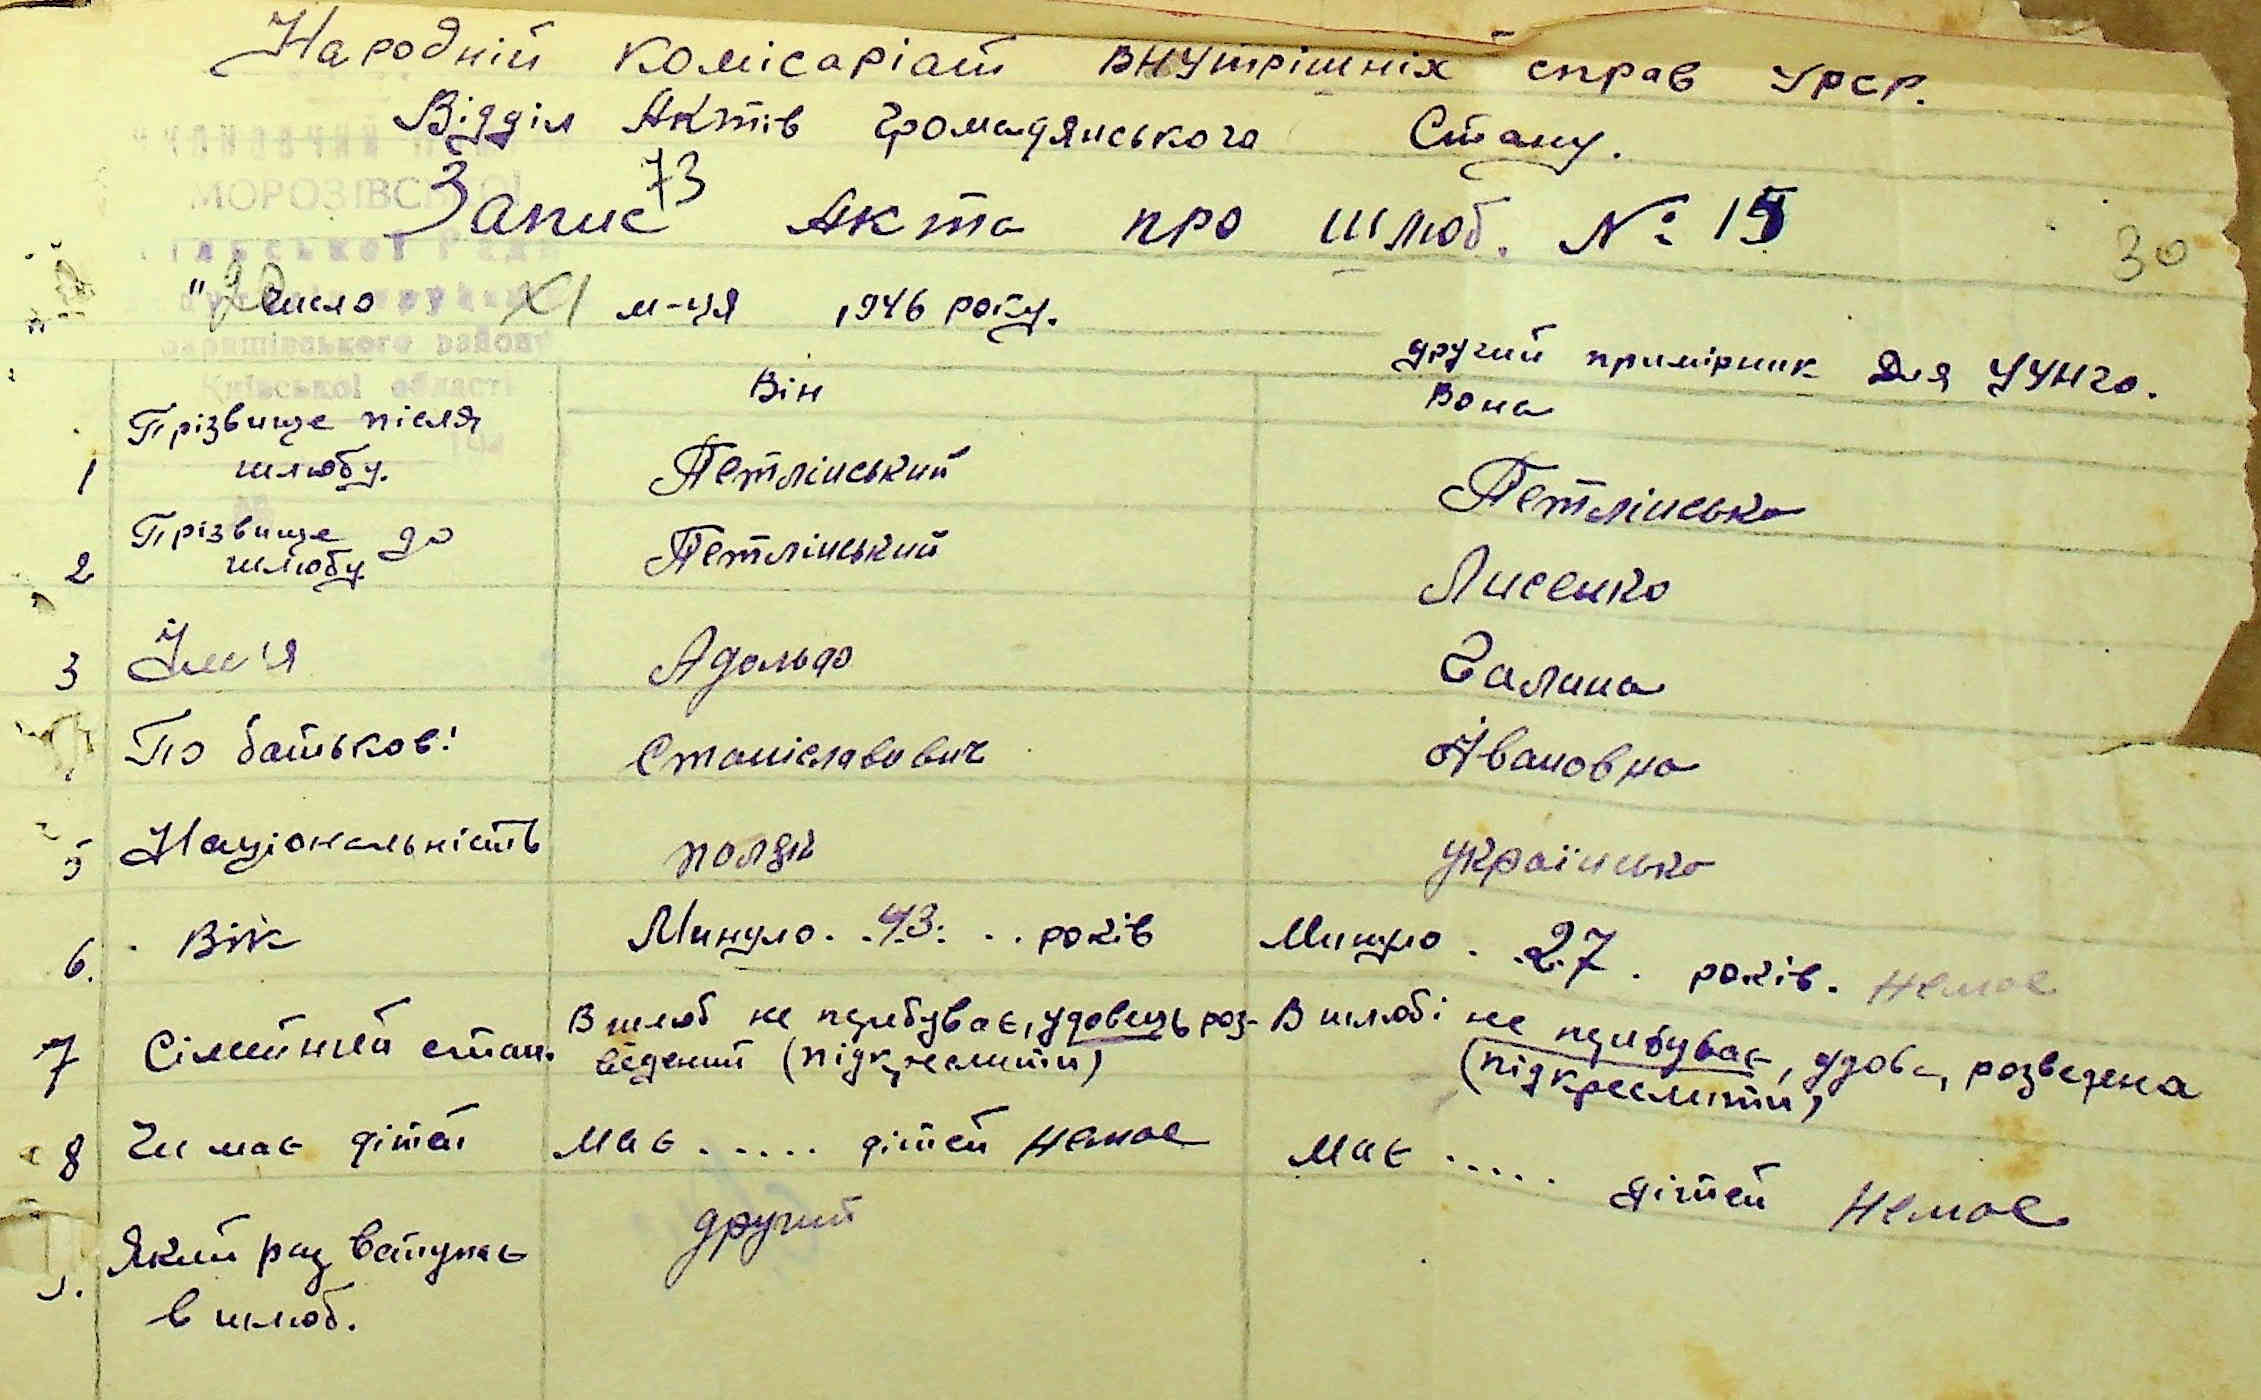 Народній комісаріат внутрішніх справ УРСР.
Відділ Актів Громадянського Стану.
73
Запис Акта про шлюб. № 15
30
"20 число XI м-ця 1946 року.
МОРОЗІВСЬКОЇ
району
Київської області
другий примірник для УУНго.
Він Вона
1 Прізвище після шлюбу. Петлінський Петлінська
2 Прізвище до шлюбу Петлінський Лисенко
3 Їм'я Адольф Галина
По батькові Станіславович Івановна
5 Національність поляк українська
6. Вік Минуло . . 43. . . років Минуло . . 27 . років. Немає
7 Сімейний стан. В шлюб не перебуває, удовець роз-ведений (підкреслити) В шлюбі не перебуває, удова, розведена (підкреслити)
8 Чи має дітей має ..... дітей Немає має ..... дітей Немає
9. Який раз вступає в шлюб. другий